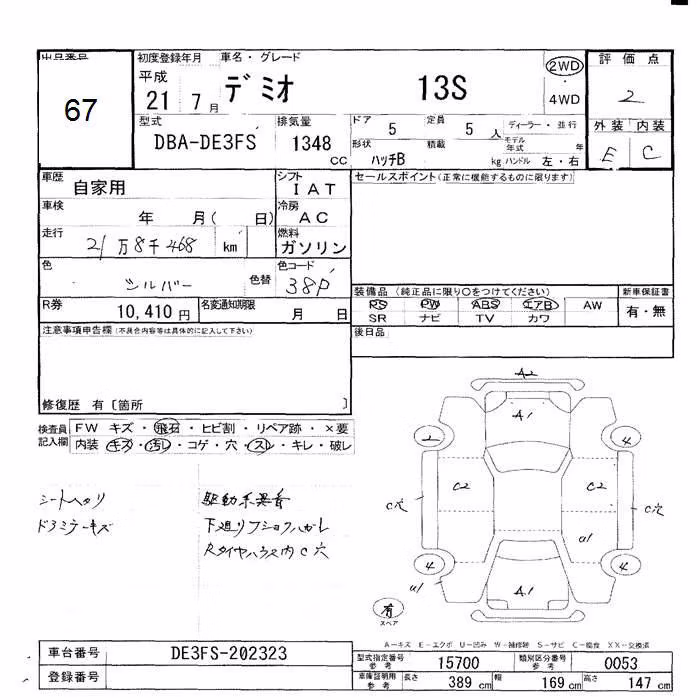 出品番号
67
初度登録年月
平成
21 7月
車名・グレード
デミオ 13S
2WD
4WD
評価点
2
型式
DBA-DE3FS
排気量
1348 CC
ドア 5
定員 5人
ディーラー・並行
形状 ハッチB
積載 kg
モデル年式 年
ハンドル 左・右
外装 内装
E C
車歴
自家用
シフト
IAT
セールスポイント(正常に機能するものに限ります)
車検
年 月( 日)
冷房
AC
走行
21万8千468 km
燃料
ガソリン
色
シルバー
色替
色コード
38P
装備品(純正品に限り○をつけてください)
新車保証書
PS PW ABS エアB AW
有・無
SR ナビ TV カワ
R券
10,410円
名変通知期限
月 日
後日品
注意事項申告欄(不具合内容等は具体的に記入して下さい)
修復歴 有〔箇所 〕
検査員記入欄
FW キズ・飛石・ヒビ割・リペア跡・×要
内装 キズ・汚レ・コゲ・穴・スレ・キレ・破レ
シートヘタリ
ドライナーキズ
駆動系異音
下廻リフショクハガレ
Rタイヤハウス内C穴
A2
A1
2
4
C2
C2
C穴
C穴
U1
4
4
U1
A1
有
スペア
A-キズ E-エクボ U-凹み W-補修跡 S-サビ C-腐食 XX-交換済
車台番号
DE3FS-202323
登録番号
型式指定番号参考
15700
類別区分番号参考
0053
車庫証明用参考
長さ 389 cm
幅 169 cm
高さ 147 cm